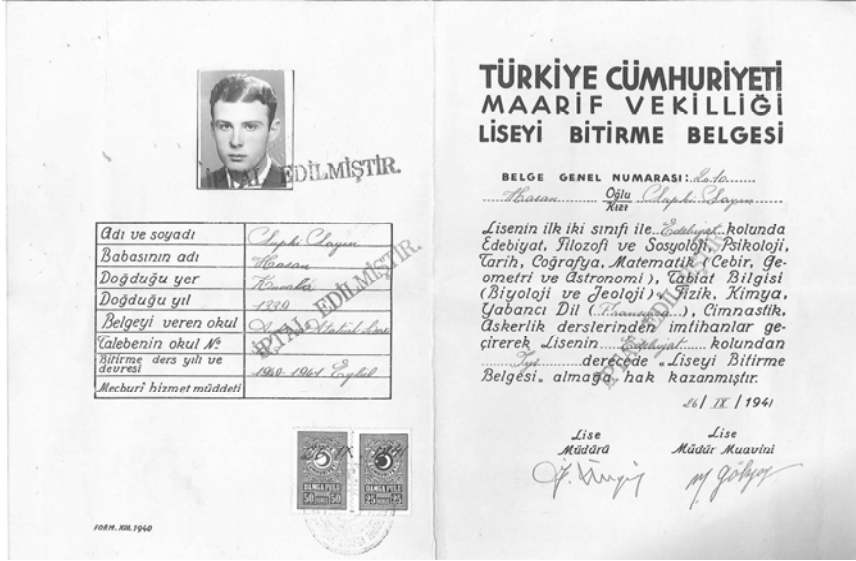 İPTAL EDİLMİŞTİR.
Adı ve soyadı Suphi Sayın
Babasının adı Hasan
Doğduğu yer
Doğduğu yıl 1339
Belgeyi veren okul Lisesi
Talebenin okul No
Bitirme ders yılı ve devresi 1940-1941 Eylül
Mecburî hizmet müddeti
İPTAL EDİLMİŞTİR.
26 IX 1941
DAMGA PULU DAMGA PULU
50 50 25 25
FORM. XIII. 1940
TÜRKİYE CÜMHURİYETİ
MAARİF VEKİLLİĞİ
LİSEYİ BİTİRME BELGESİ
BELGE GENEL NUMARASI: 2010
Hasan Oğlu Suphi Sayın
Kızı
Lisenin ilk iki sınıfı ile Edebiyat kolunda
Edebiyat, Filozofi ve Sosyoloji, Psikoloji,
Tarih, Coğrafya, Matematik (Cebir, Ge-
ometri ve Astronomi), Tabiat Bilgisi
(Biyoloji ve Jeoloji), Fizik, Kimya,
Yabancı Dil (Fransızca), Cimnastik,
Askerlik derslerinden imtihanlar ge-
çirerek Lisenin Edebiyat kolundan
İyi derecede „Liseyi Bitirme
Belgesi„ almağa hak kazanmıştır.
İPTAL EDİLMİŞTİR.
26/ IX / 1941
Lise Lise
Müdürü Müdür Muavini